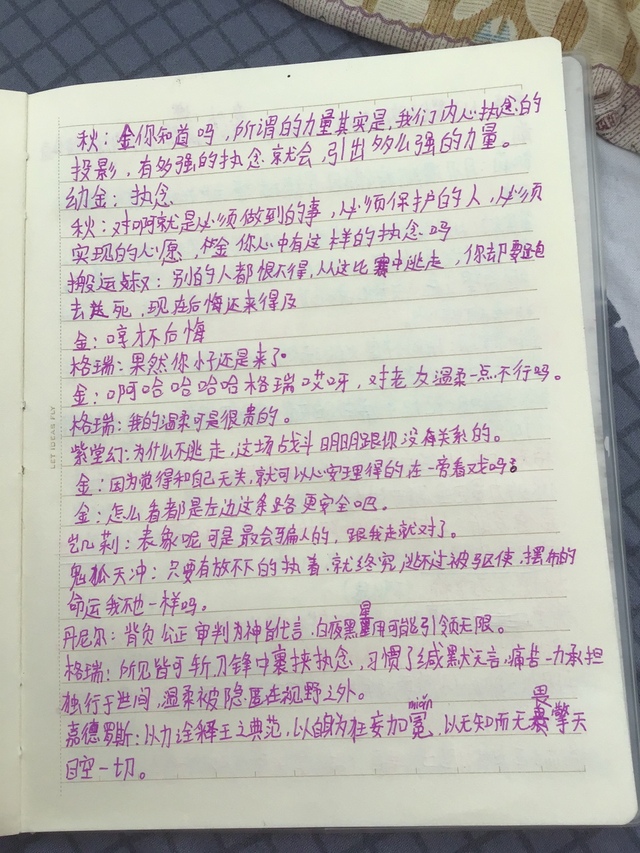 秋：金你知道吗，所谓的力量其实是，我们内心执念的
投影，有多强的执念就会，引出多么强的力量。
幼金：执念
秋：对啊就是必须做到的事，必须保护的人，必须
实现的心愿，金你心中有这样的执念吗
搬运大叔：别的人都恨不得，从这比赛中逃走，你却要跑
去送死，现在后悔还来得及
金：哼才不后悔
格瑞：果然你小子还是来了。
金：啊哈哈哈哈格瑞哎呀，对老友温柔一点不行吗。
格瑞：我的温柔可是很贵的。
紫堂幻：为什么不逃走，这场战斗明明跟你没有关系的。
金：因为觉得和自己无关，就可以心安理得的在一旁看戏吗？
金：怎么看都是左边这条路更安全吧。
凯莉：表象呢可是最会骗人的，跟我走就对了。
鬼狐天冲：只要有放不下的执着，就终究逃不过被驱使，摆布的
命运我不也一样吗。
星
丹尼尔：背负公正审判为神旨代言，白夜黑用可能引领无限。
格瑞：所见皆可斩刀锋中裹挟执念，习惯了缄默无言，痛苦一力承担
独行于世间，温柔被隐匿在视野之外。
miǎn 畏
嘉德罗斯：以力诠释王之典范，以自身为狂妄加冕，以无知而无擎天
目空一切。
LET IDEAS FLY